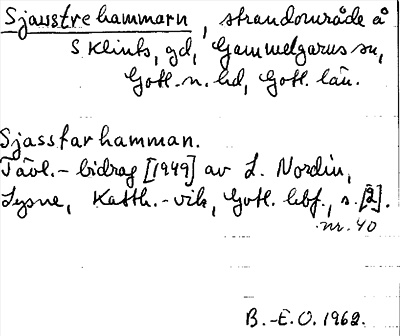 Sjausstrehammarn, strandområde å
S Klints, gd, Gammelgarns sn,
Gotl. n. hd, Gotl. län.
Sjassfarhamman.
Tävl.-bidrag [1949] av L. Nordin,
Lysne, Katth.-vik, Gotl. hbf., s. [2].
nr. 40
B.-E.O. 1962.